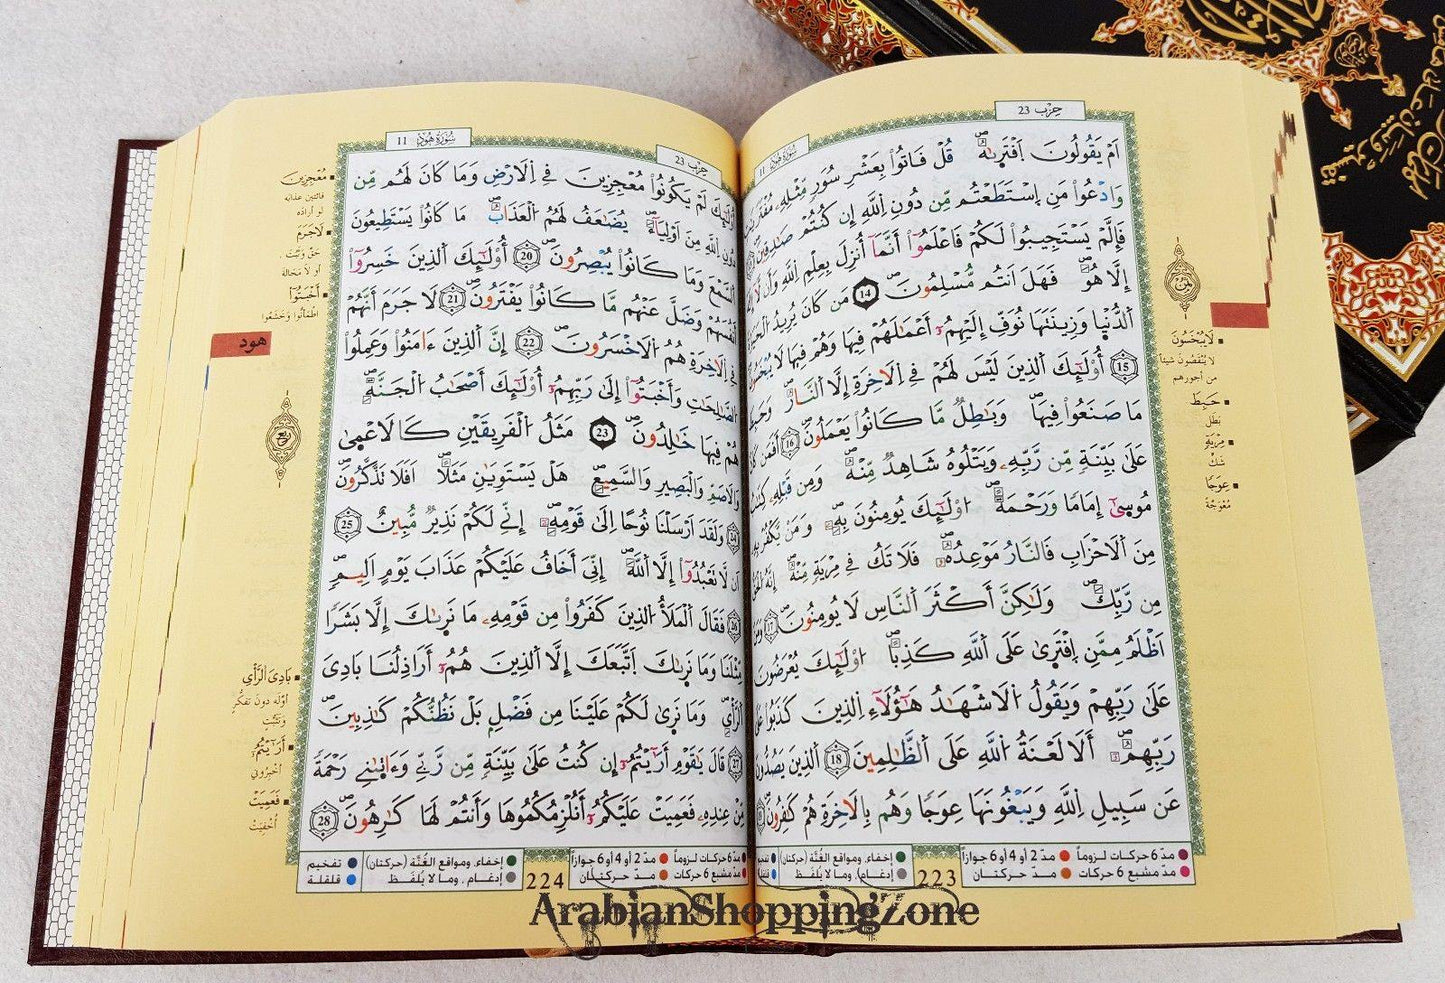 حِزْب 23
سُورَةُ هُودٍ 11
اَمْ يَقُولُونَ اَفْتَر۪يٰهُ قُلْ فَاتُوا۟ بِعَشْرِ سُوَرٍ مِّثْلِهِۦ
وَادْعُوا۟ مَنِ اِسْتَطَعْتُم مِّن دُونِ اِ۬للَّهِ إِن كُنتُمْ صَٰدِقِينَ
فَإِلَّمْ يَسْتَجِيبُوا۟ لَكُمْ فَاعْلَمُوٓا۟ أَنَّمَآ أُنزِلَ بِعِلْمِ اِ۬للَّهِ وَأَن لَّآ
إِلَّا هُوَ فَهَلَ اَنتُم مُّسْلِمُونَ 14 مَن كَانَ يُرِيدُ
اُ۬لدُّنْيا وَزِينَتَهَا نُوَفِّ إِلَيْهِمُۥٓ أَعْمَٰلَهُمْ فِيهَا وَهُمْ فِيهَا لَا
15 أُو۟لَٰٓئِكَ اَ۬لذِينَ لَيْسَ لَهُمْ فِے اِ۬لَاخِرَةِ إِلَّا اَ۬لنَّارُ
مَا صَنَعُوا۟ فِيهَا وَبَٰطِلٌ مَّا كَانُوا۟ يَعْمَلُونَ 16 أَفَمَن كَانَ
عَلَىٰ بَيِّنَةٍ مِّن رَّبِّهِۦ وَيَتْلُوهُ شَاهِدٌ مِّنْهُ وَمِن قَبْلِهِۦ كِتَٰبُ
مُوس۪ىٰٓ إِمَامًا وَرَحْمَةً ا۟وْلَٰٓئِكَ يُومِنُونَ بِهِۦ وَمَنْ يَّكْفُرْ بِهِۦ
مِنَ اَ۬لَاحْزَابِ فَالنَّارُ مَوْعِدُهُۥ فَلَا تَكُ فِے مِرْيَةٍ مِّنْهُ إِنَّهُ
مِن رَّبِّكَ وَلَٰكِنَّ أَكْثَرَ اَ۬لنَّاسِ لَا يُومِنُونَ 17 وَمَنَ
اَظْلَمُ مِمَّنِ اِفْتَر۪ىٰ عَلَى اَ۬للَّهِ كَذِبًا ا۟وْلَٰٓئِكَ يُعْرَضُونَ
عَلَىٰ رَبِّهِمْ وَيَقُولُ اُ۬لَاشْهَٰدُ هَٰٓؤُلَآءِ اِ۬لذِينَ كَذَبُوا۟ عَلَىٰ
رَبِّهِمُۥٓ أَلَا لَعْنَةُ اُ۬للَّهِ عَلَى اَ۬لظَّٰلِمِينَ 18 اَ۬لذِينَ يَصُدُّونَ
عَن سَبِيلِ اِ۬للَّهِ وَيَبْغُونَهَا عِوَجًا وَهُم بِالَاخِرَةِ هُمْ كَٰفِرُونَ
لَا يُبْخَسُونَ
لا يُنْقَصُونَ شيئاً
من أجورهم
حَبِطَ
بَطَل
مِرْيَةٍ
شَكّ
عِوَجًا
مُعْوَجَّةً
مدّ 6 حركات لزوماً مدّ 2 أو 4 أو 6 جوازاً
مدّ مشبع 6 حركات مدّ حركتان
223
إخفاء، ومواقع الغُنَّة (حركتان)
إدغام، وما لا يُلفَظ
سُورَةُ هُودٍ 11
حِزْب 23
أُو۟لَٰٓئِكَ لَمْ يَكُونُوا۟ مُعْجِزِينَ فِے اِ۬لَارْضِ وَمَا كَانَ لَهُم مِّن
دُونِ اِ۬للَّهِ مِنَ اَوْلِيَآءَ يُضَٰعَفُ لَهُمُ اُ۬لْعَذَابُ مَا كَانُوا۟ يَسْتَطِيعُونَ
اَ۬لسَّمْعَ وَمَا كَانُوا۟ يُبْصِرُونَ 20 أُو۟لَٰٓئِكَ اَ۬لذِينَ خَسِرُوٓا۟
أَنفُسَهُمْ وَضَلَّ عَنْهُم مَّا كَانُوا۟ يَفْتَرُونَ 21 لَا جَرَمَ أَنَّهُمْ
فِے اِ۬لَاخِرَةِ هُمُ اُ۬لَاخْسَرُونَ 22 إِنَّ اَ۬لذِينَ ءَامَنُوا۟ وَعَمِلُوا۟
اُ۬لصَّٰلِحَٰتِ وَأَخْبَتُوٓا۟ إِلَىٰ رَبِّهِمُۥٓ أُو۟لَٰٓئِكَ أَصْحَٰبُ اُ۬لْجَنَّةِ
هُمْ فِيهَا خَٰلِدُونَ 23 مَثَلُ اُ۬لْفَرِيقَيْنِ كَالَاعْم۪ىٰ
وَالَاصَمِّ وَالْبَصِيرِ وَالسَّمِيعِ هَلْ يَسْتَوِيَٰنِ مَثَلًا اَفَلَا تَذَّكَّرُونَ
24 وَلَقَدَ اَرْسَلْنَا نُوحًا اِلَىٰ قَوْمِهِۦٓ إِنِّے لَكُمْ نَذِيرٌ مُّبِينٌ 25
اَن لَّا تَعْبُدُوٓا۟ إِلَّا اَ۬للَّهَ إِنِّيَ أَخَافُ عَلَيْكُمْ عَذَابَ يَوْمٍ اَلِيمٍ
26 فَقَالَ اَ۬لْمَلَأُ اُ۬لذِينَ كَفَرُوا۟ مِن قَوْمِهِۦ مَا نَر۪يٰكَ إِلَّا بَشَرًا
مِّثْلَنَا وَمَا نَر۪يٰكَ اَ۪تَّبَعَكَ إِلَّا اَ۬لذِينَ هُمُۥٓ أَرَاذِلُنَا بَادِىَ
اَ۬لرَّأْيِ وَمَا نَر۪ىٰ لَكُمْ عَلَيْنَا مِن فَضْلِۢ بَلْ نَظُنُّكُمْ كَٰذِبِينَ
27 قَالَ يَٰقَوْمِ أَرَٰٓيْتُمُۥٓ إِن كُنتُ عَلَىٰ بَيِّنَةٍ مِّن رَّبِّے وَءَات۪يٰنِے رَحْمَةً
مِّنْ عِندِهِۦ فَعَمِيَتْ عَلَيْكُمُۥٓ أَنُلْزِمُكُمُوهَا وَأَنتُمْ لَهَا كَٰرِهُونَ 28
مُعْجِزِينَ
فائتين عذابه
لو أراده
لَا جَرَمَ
حَقَّ وَثَبَتَ
أو لا مَحَالة
أَخْبَتُوٓا۟
اطْمَأنُّوا وَخَشَعُوا
هود
ربع
بَادِىَ اَ۬لرَّأْيِ
أوّله دون تَفَكُّرٍ
وَتَثَبُّتٍ
أَرَٰٓيْتُمُۥٓ
أخْبِرُوني
فَعَمِيَتْ
أُخْفِيَتْ
مدّ 6 حركات لزوماً مدّ 2 أو 4 أو 6 جوازاً
مدّ مشبع 6 حركات مدّ حركتان
224
إخفاء، ومواقع الغُنَّة (حركتان) تفخيم
إدغام، وما لا يُلفَظ قلقلة
ArabianShoppingZone